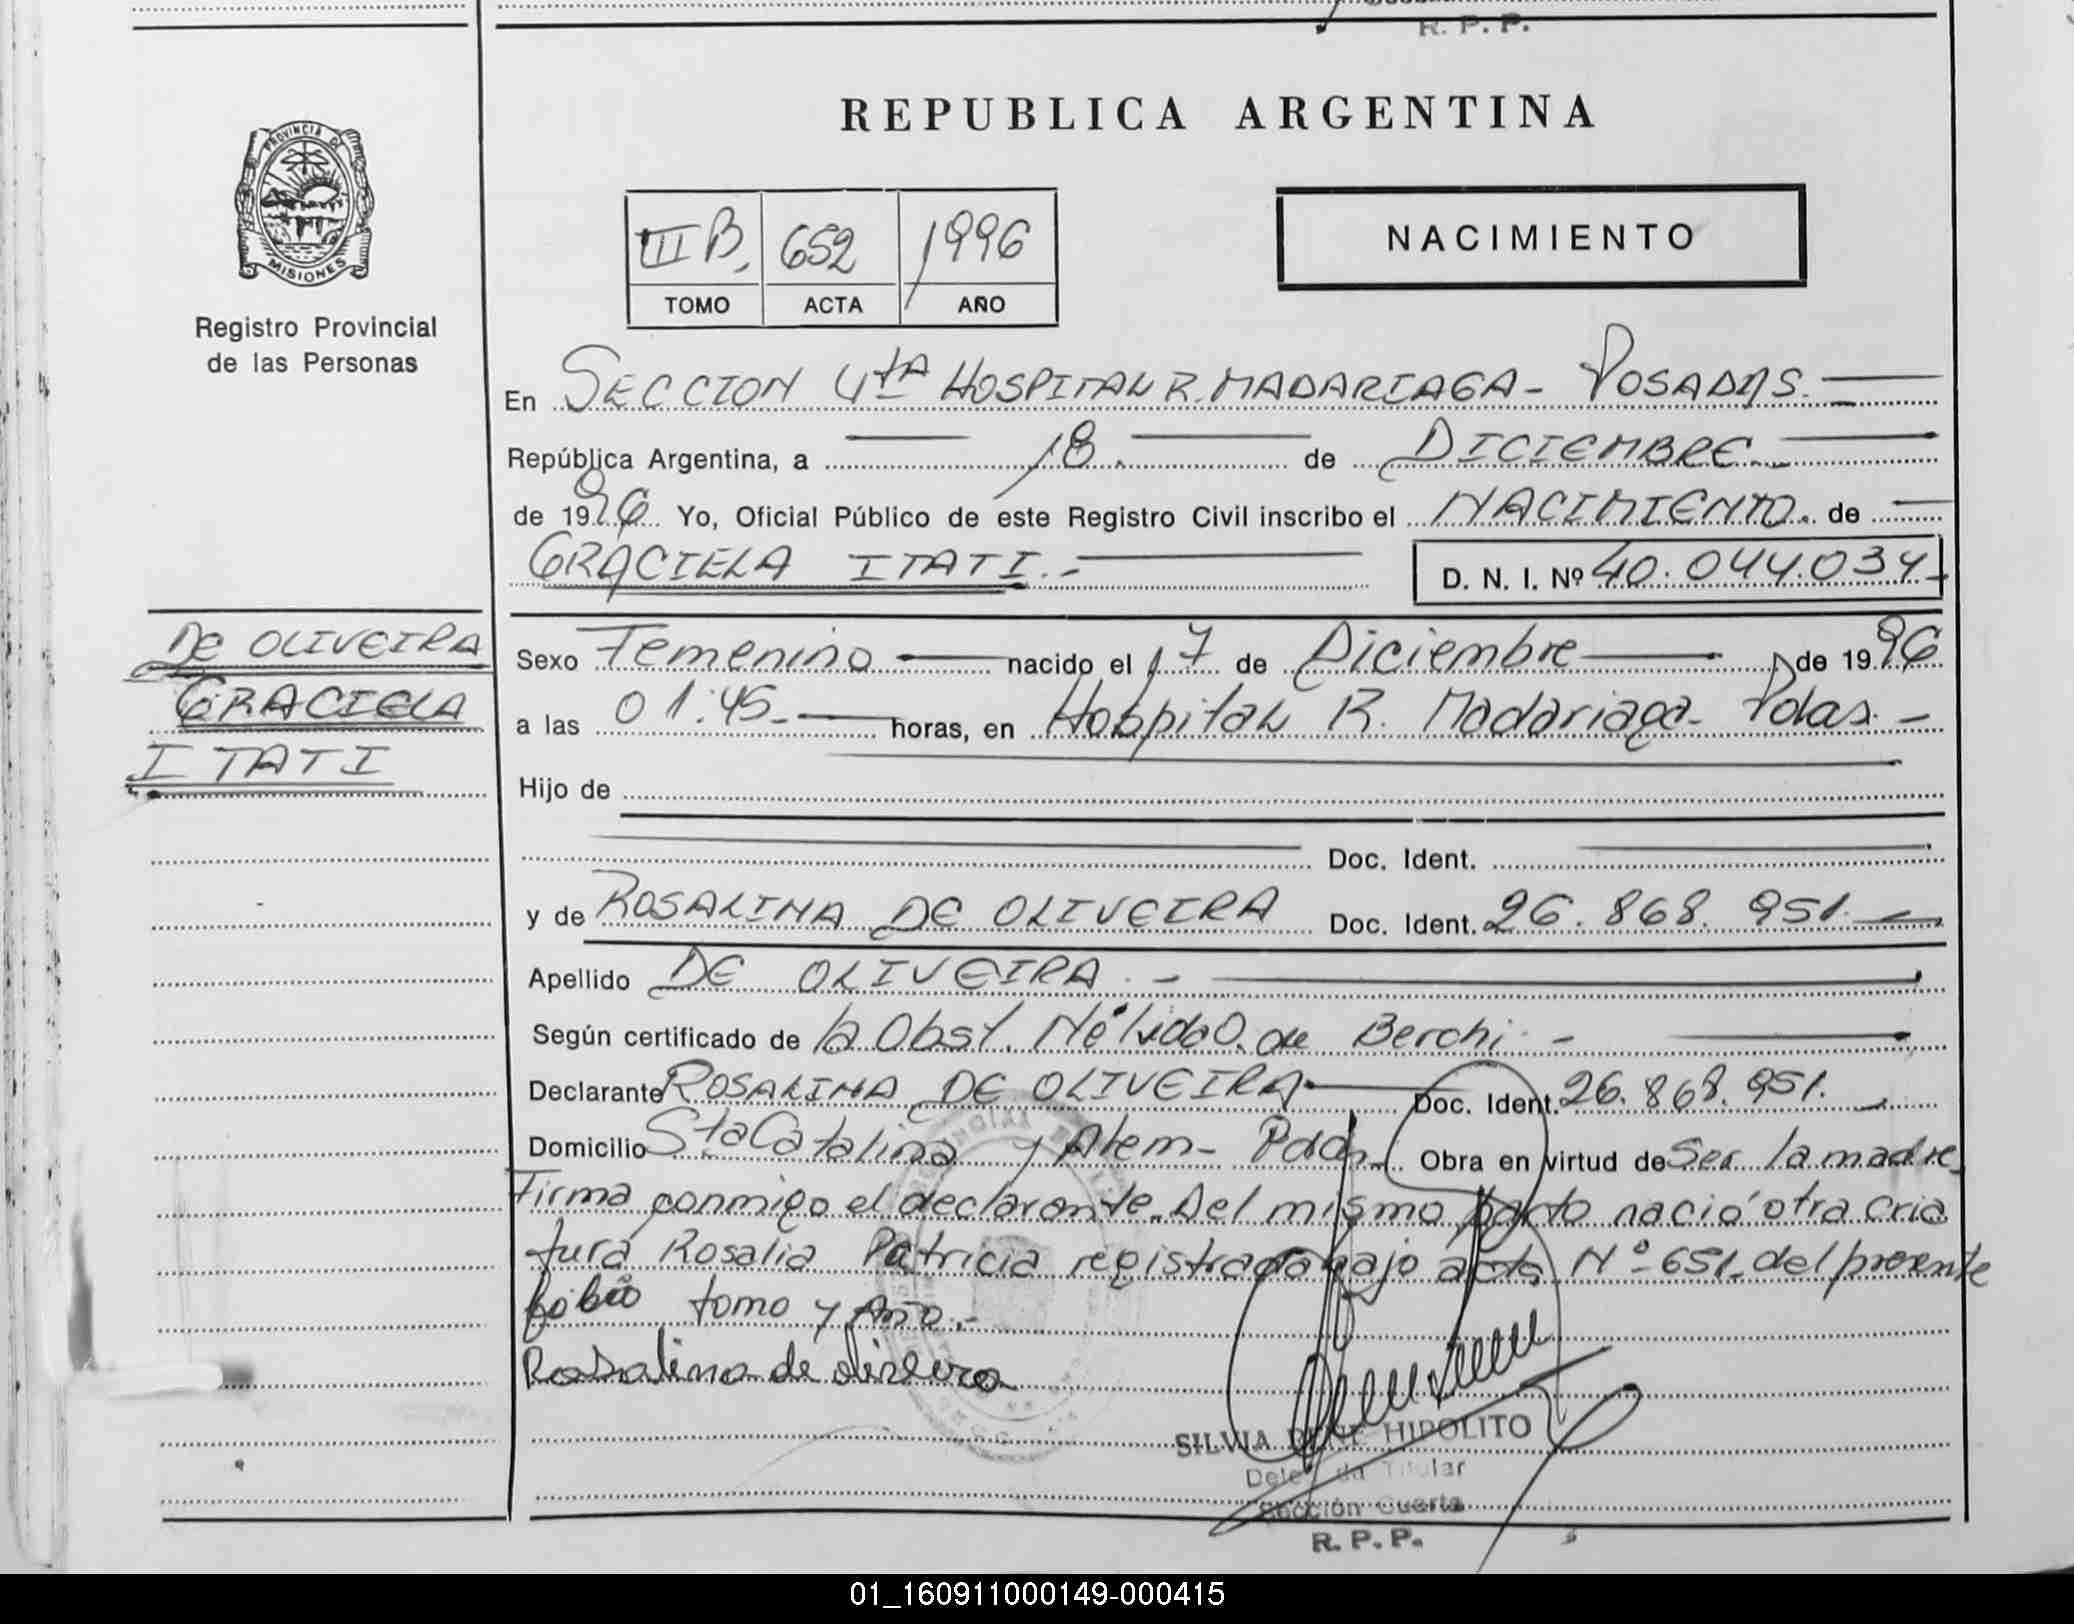 R. P. P.
PROVINCIA DE
MISIONES
Registro Provincial
de las Personas
REPUBLICA ARGENTINA
III B. 652 1996
TOMO ACTA AÑO
NACIMIENTO
En SECCION 4tA HOSPITAL R. MADARIAGA - POSADAS.
República Argentina, a 18. de DICIEMBRE
de 1996 Yo, Oficial Público de este Registro Civil inscribo el NACIMIENTO. de
GRACIELA ITATI.- D. N. I. Nº 40.044.034
DE OLIVEIRA
GRACIELA
ITATI
Sexo Femenino nacido el 17 de Diciembre de 1996
a las 01:45 horas, en Hospital R. Madariaga - Pdas.-
Hijo de
Doc. Ident.
y de ROSALINA DE OLIVEIRA Doc. Ident. 26.868.951.
Apellido DE OLIVEIRA.-
Según certificado de la Obst. Nélida O. de Berchi.-
Declarante ROSALINA DE OLIVEIRA Doc. Ident. 26.868.951.
Domicilio Sta Catalina y Alem - Pdas. Obra en virtud de Ser la madre.
Firma conmigo el declarante. Del mismo parto nació otra cria
tura Rosalia Patricia registrada bajo acta Nº 651 del presente
tomo y Año.-
Rosalina de oliveira
SILVIA RENE HIPOLITO
Delegada Titular
Sección Cuarta
R. P. P.
01_160911000149-000415